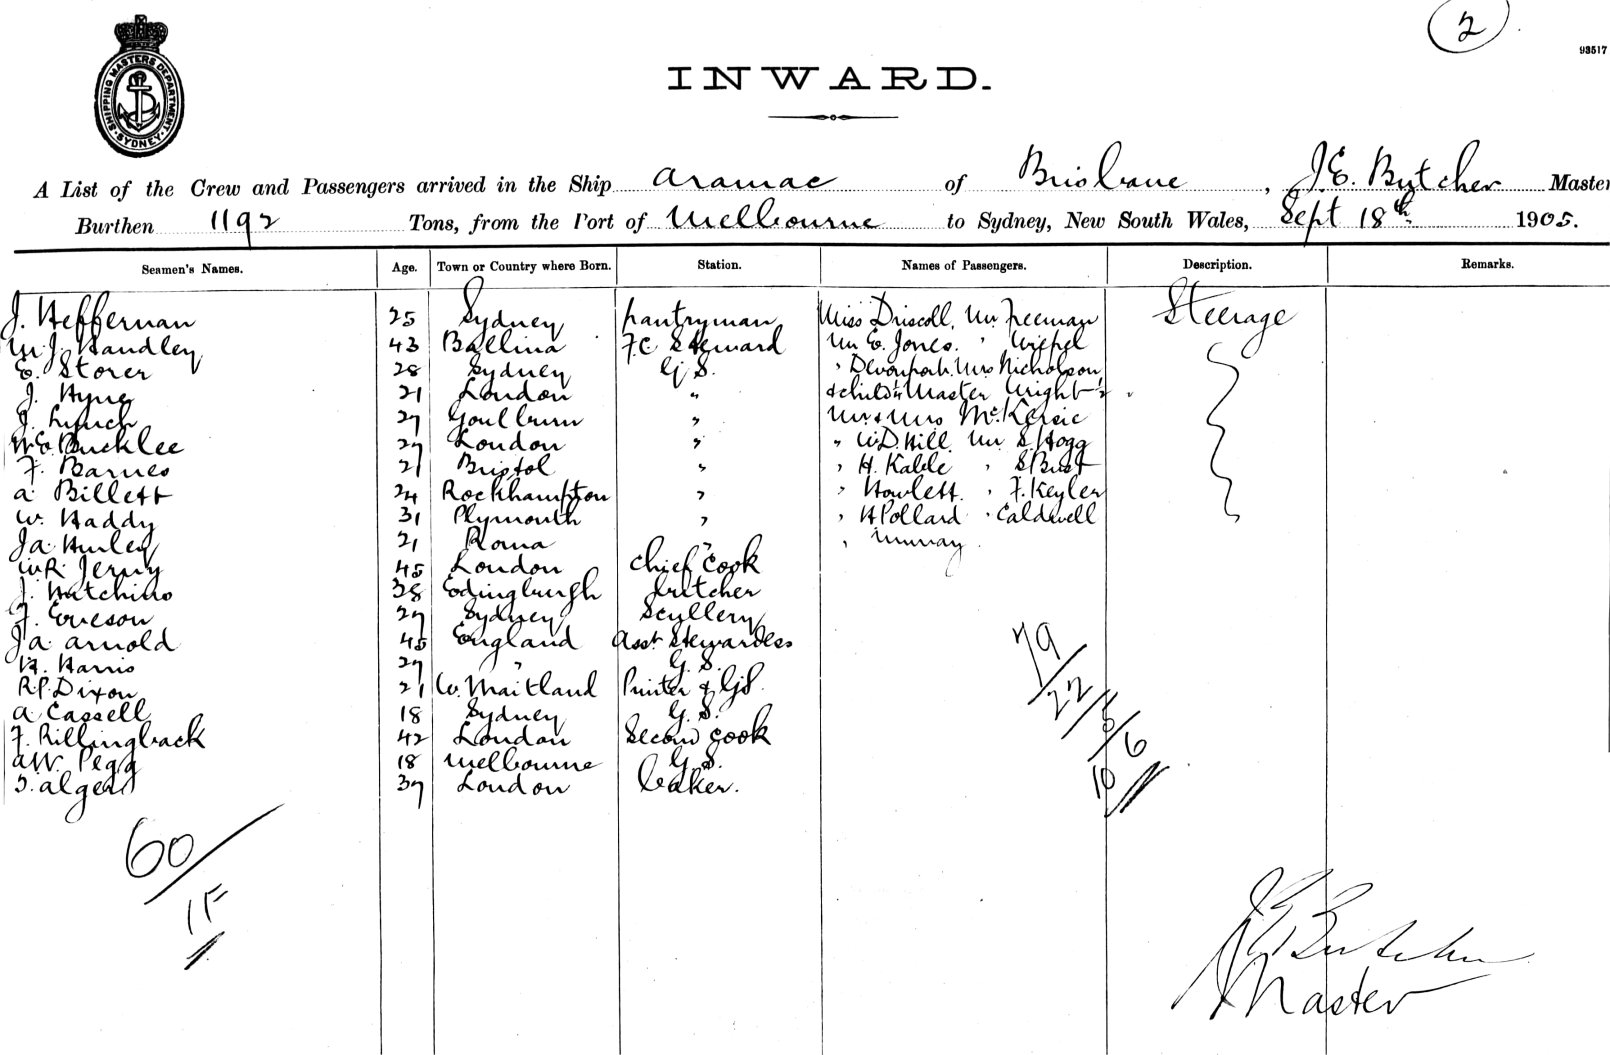 2
93517
SHIPPING MASTERS DEPARTMENT SYDNEY
INWARD.
A List of the Crew and Passengers arrived in the Ship Aramac of Brisbane, J.E. Butcher Master
Burthen 1192 Tons, from the Port of Melbourne to Sydney, New South Wales, Sept 18th 1905.
Seamen's Names. Age. Town or Country where Born. Station. Names of Passengers. Description. Remarks.
J. Heffernan 25 Sydney pantryman Miss Driscoll, Mr Freeman Steerage
M.J. Handley 43 Ballina F.C Steward Mr E. Jones. "
E. Storer 28 Sydney G.S. " Devonport. Mrs Nicholson
J. Hyne 21 London " & child & Master Wright
J. Lynch 27 Goulburn " Mr & Mrs McKersie
W.E. Bucklee 27 London " " W.D. Hill Mr S. Hogg
F. Barnes 21 Bristol " " H. Kable "
A Billett 24 Rockhampton " " Howlett. " F. Keyler
W. Haddy 31 Plymouth " " H Pollard " Caldwell
J a Hurley 21 Roma " " Murray
W.R. Jenny 45 London chief Cook
J. Hutchins 38 Edingburgh butcher
F. Everson 27 Sydney Scyllery
J a Arnold 45 England Asst Stewardess
H. Harris 27 " G.S.
R.P. Dixon 21 W. Maitland Printer & G.S.
A Cassell 18 Sydney G.S.
F. Rillingback 42 London Second Cook
A.W. Pegg 18 Melbourne G.S.
S. Alger 37 London baker.
79/22/5/6
10
60/1F/1
J E Butcher
Master